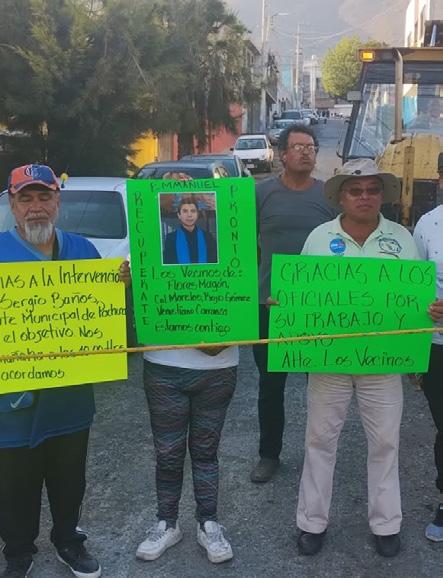 AS A LA Intervención
Sergio Baños,
te Municipal de Pachuca
el objetivo. Nos
acordamos
EMMANUEL
RECUPERATE
PRONTO
Los Vecinos de:
Flores Magón,
Col Morelos, Rojo Gómez
Venustiano Carranza
Estamos contigo
GRACIAS A LOS
OFICIALES POR
SU TRABAJO Y
APOYO
Atte. Los Vecinos